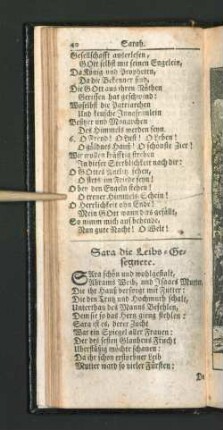 40 Sarah.
Gesellschafft auserlesen,
GOtt selbst mit seinen Engelein,
Da König und Propheten,
Da die Bekenner sind,
Die GOtt aus ihren Nöthen
Gerissen hat geschwind:
Woselbst die Patriarchen
Und keusche Jungfräulein
Besitzer und Monarchen
Des Himmels werden seyn.
6. O Freud! O Lust! O Leben!
O güldnes Hauß! O schönste Zier!
Wir wollen kräfftig streben
In dieser Sterblichkeit nach dir:
O GOttes Antlitz sehen,
O stets im Friede seyn!
O bey den Engeln stehen!
O treuer Himmels-Schein!
O Herrlichkeit ohn Ende!
Mein GOtt wann dirs gefällt,
So nimm mich auf behende,
Nun gute Nacht! O Welt!
Sara die Leibs-Ge-
segnete.
SAra schön und wohlgestalt,
Abrams Weib, und Isaacs Mutter
Die ihr Hauß versorgt mit Futter:
Die den Trutz und Hochmuth schalt,
Unterthan des Manns Befehlen,
Dem sie so das Hertz gieng stehlen:
Sara ist es, derer Zucht
War ein Spiegel aller Frauen:
Der des festen Glaubens Frucht
Uberflüßig mochte schauen:
Da ihr schon erstorbner Leib
Mutter ward so vieler Fürsten: